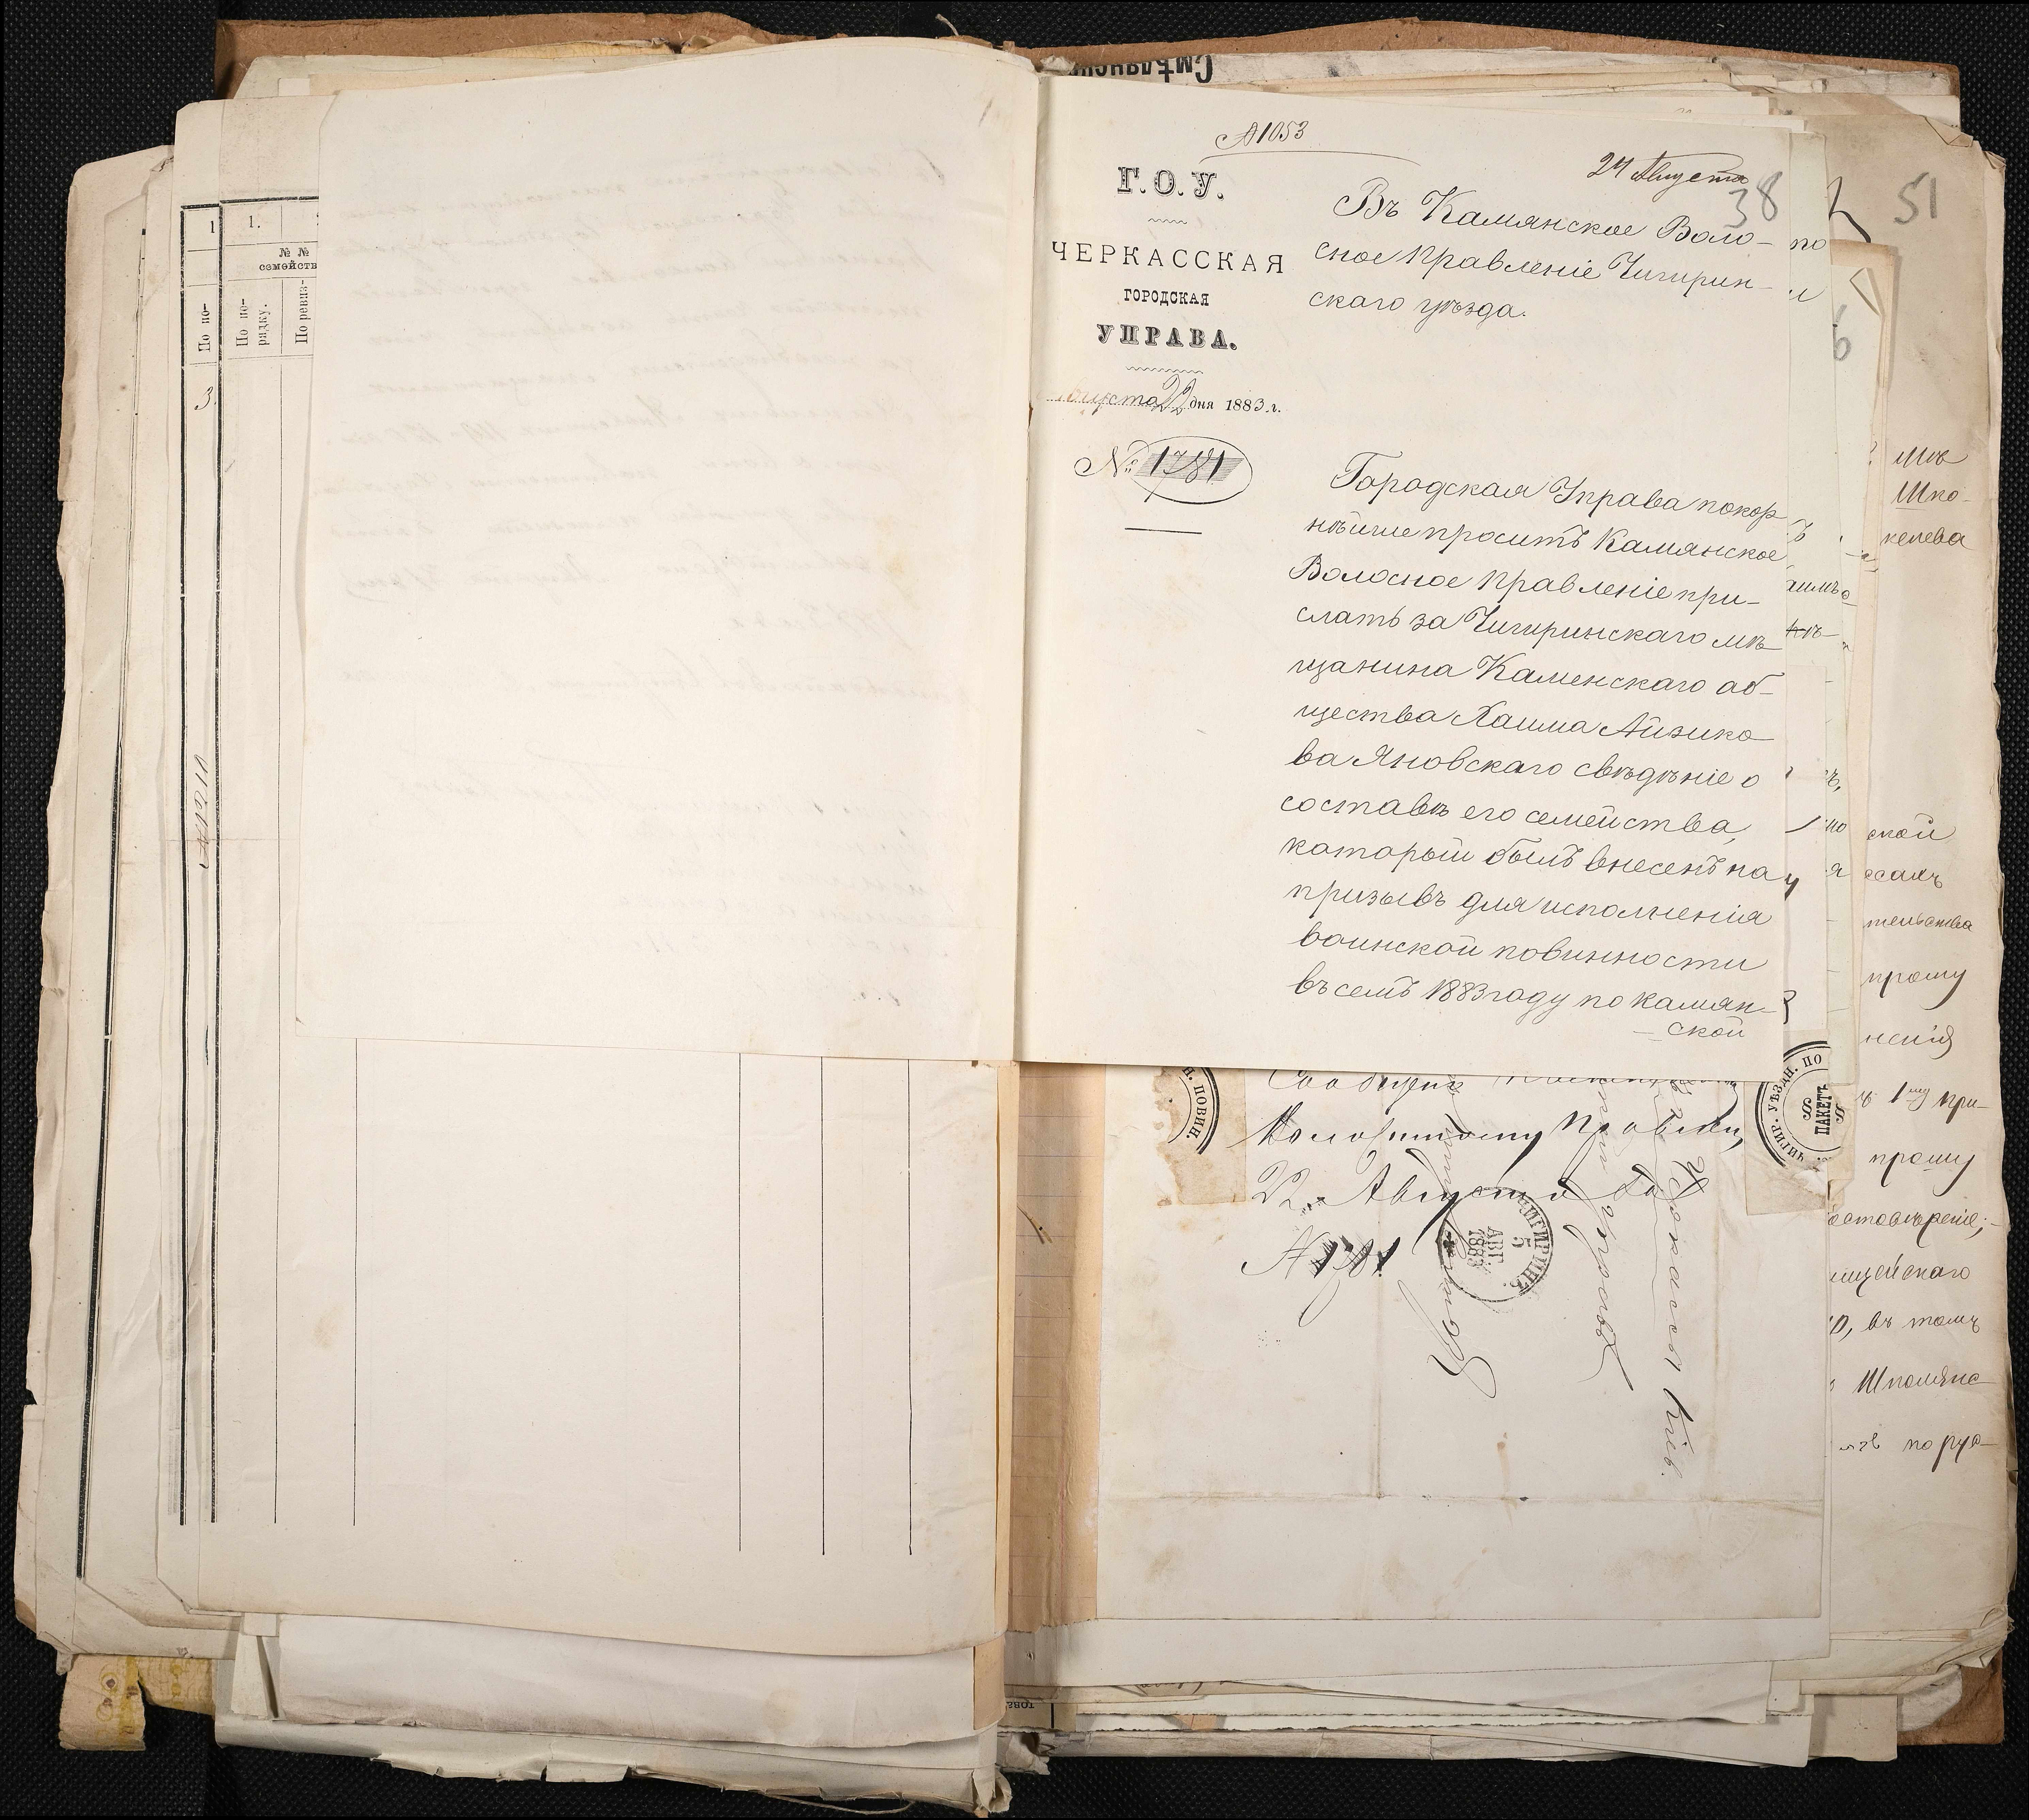 Смѣлянск
А1053
24 Августа
38
51
Г.О.У.
ЧЕРКАССКАЯ
ГОРОДСКАЯ
УПРАВА.
Августа 22 дня 1883 г.
№ 1781
Въ Камянское Воло-
сное Правленіе Чигирин-
скаго уѣзда.
Городская Управа покор
нѣйше проситъ Камянское
Волосное Правленіе при-
слать за Чигиринскаго мѣ
щанина Каменскаго об-
щества Хаима Айзико
ва Яновскаго свѣдѣніе о
составѣ его семейства,
который былъ внесенъ на
призывъ для исполненія
воинской повинности
въ семъ 1883 году по камян-
ской
1
1.
№ №
семейств
По по-
По по-
рядку.
По ревиз-
3.
22 Августа
№ 1781
ЧИГИРИНЪ
5
АВГ.
1883
Черкассы Кіев.
Н. ПОВИН.
ЧИГИР. УѢЗДН. ПО
ПАКЕТЪ
мѣ
Шпо-
келева
ской
тельства
прошу
ненія
1му при-
прошу
въ томъ
Шполянс
по рус-